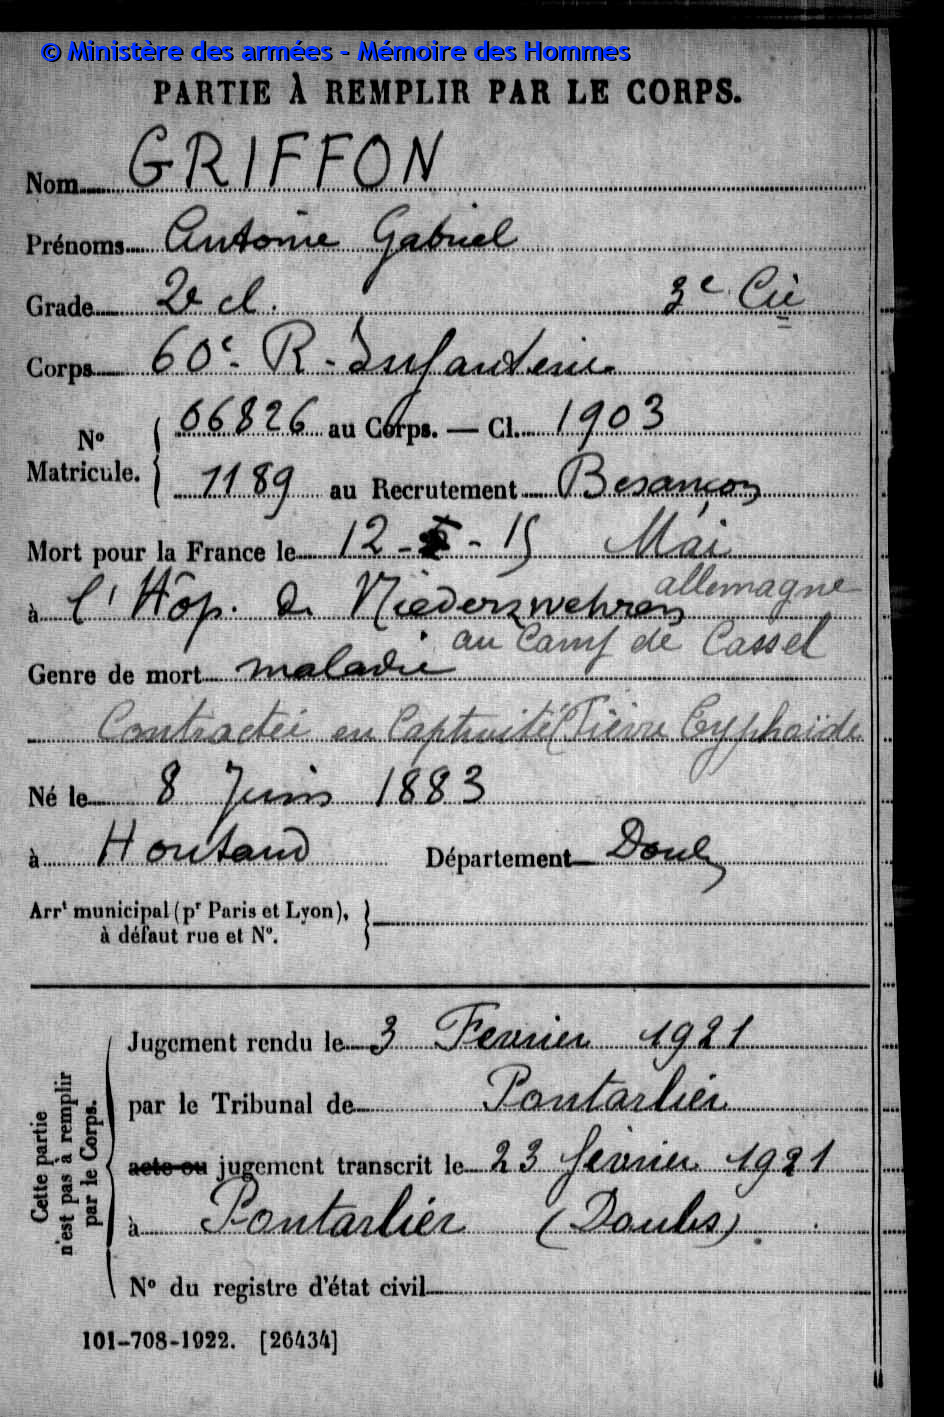 © Ministère des armées - Mémoire des Hommes
PARTIE À REMPLIR PAR LE CORPS.
Nom GRIFFON
Prénoms Antoine Gabriel
Grade 2e cl. 3e Cie
Corps 60e R. Infanterie
No Matricule. 06826 au Corps. — Cl. 1903
1189 au Recrutement Besançon
Mort pour la France le 12 - 5 - 15 Mai
allemagne
à l'Hôp. de Niederzwehren
au Camp de Cassel
Genre de mort maladie
Contractée en Captivité (Fièvre Typhoïde
Né le 8 Juin 1883
à Houtaud Département Doubs
Arrt municipal (pr Paris et Lyon),
à défaut rue et N°.
Cette partie n'est pas à remplir par le Corps.
Jugement rendu le 3 Fevrier 1921
par le Tribunal de Pontarlier
acte ou jugement transcrit le 23 février 1921
à Pontarlier (Doubs).
N° du registre d'état civil
101-708-1922. [26434]